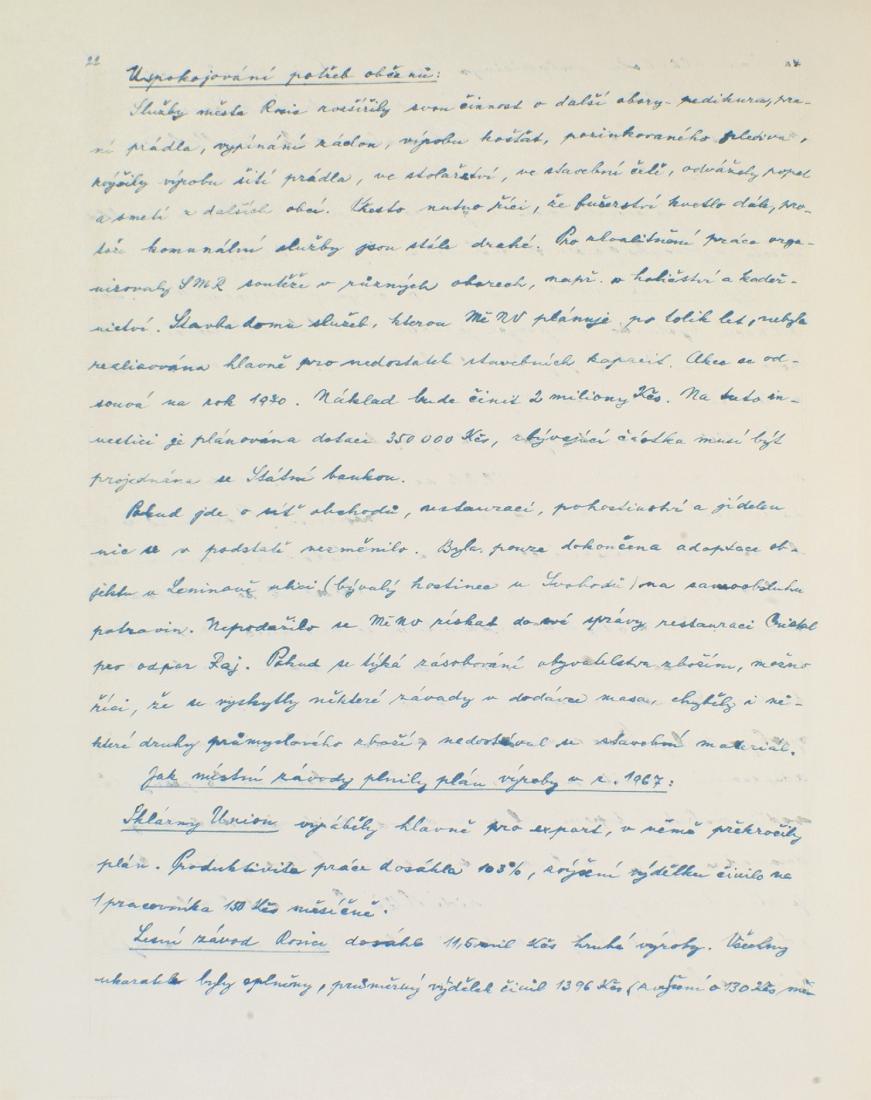 22
Uspokojování potřeb občanů:
Služby města Rosic rozšířily svou činnost o další obory - pedikura, pra-
ní prádla, vypínání záclon, výrobu košťat, pozinkovaného pletiva,
zvýšily výrobu šití prádla, ve stolařství, ve stavební četě, odvážely popel
a smetí z dalších obcí. Přesto nutno říci, že fušerství kvetlo dále, pro-
tože komunální služby jsou stále drahé. Pro zkvalitnění práce orga-
nizovaly SMR soutěže v různých oborech, např. v holičství a kadeř-
nictví. Stavba domu služeb, kterou MěNV plánuje po tolik let, nebyla
realisována hlavně pro nedostatek stavebních kapacit. Akce se od-
souvá na rok 1970. Náklad bude činit 2 miliony Kčs. Na tuto in-
vestici je plánována dotace 350 000 Kčs, zbývající částka musí být
projednána se Státní bankou.
Pokud jde o síť obchodů, restaurací, pohostinství a jídelen
nic se v podstatě nezměnilo. Byla pouze dokončena adaptace ob-
jektu v Leninově ulici (bývalý hostinec u Svobodů) na samoobsluhu
potravin. Nepodařilo se MěNV získat do své správy restauraci
pro odpor Raj. Pokud se týká zásobování obyvatelstva zbožím, možno
říci, že se vyskytly některé závady v dodávce masa, chyběly i ně-
které druhy průmyslového zboží, nedostával se stavební materiál.
Jak místní závody plnily plán výroby v r. 1967:
Sklárny Union vyráběly hlavně pro export, v němž překročily
plán. Produktivita práce dosáhla 103%, zvýšení výdělku činilo na
1 pracovníka 130 Kčs měsíčně.
Lesní závod Rosice dosáhl 11,5 mil Kčs hrubé výroby. Všechny
ukazatele byly splněny, průměrný výdělek činil 1396 Kčs (zvýšení o 130 Kčs měs